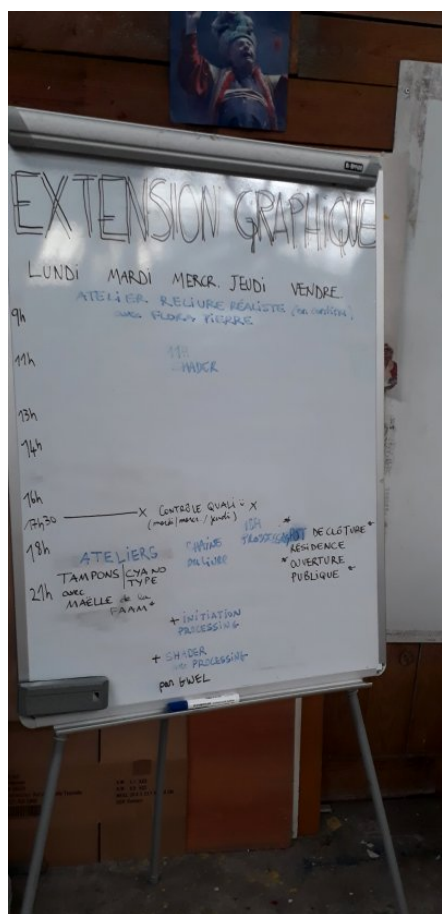 EXTENSION GRAPHIQUE
LUNDI MARDI MERCR. JEUDI VENDRE.
ATELIER RELIURE RÉALISTE
9h avec FLORA PIERRE
11h 11h
13h
14h
16h
17h30 X CONTRÔLE QUALI X
(mardi/mercr./jeudi)
18h
ATELIERS
TAMPONS/CYANO
TYPE
21h avec
MAËLLE de la
PAAM*
CHAÎNE
DU LIVRE
18h
* DE CLÔTURE *
RÉSIDENCE
* OUVERTURE
PUBLIQUE *
+ INITIATION
PROCESSING
+ SHADER
PROCESSING
par GWEL